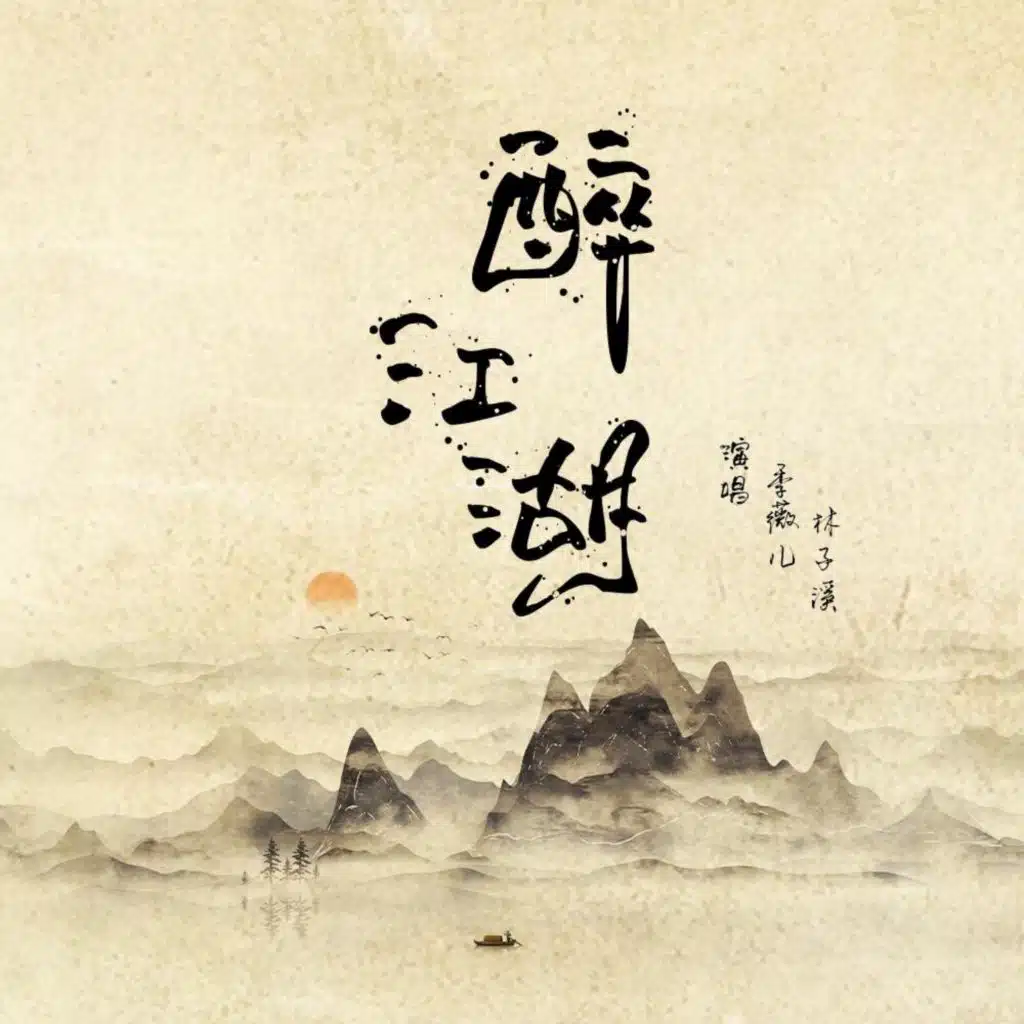 醉江湖
演唱
季薇儿
林子溪